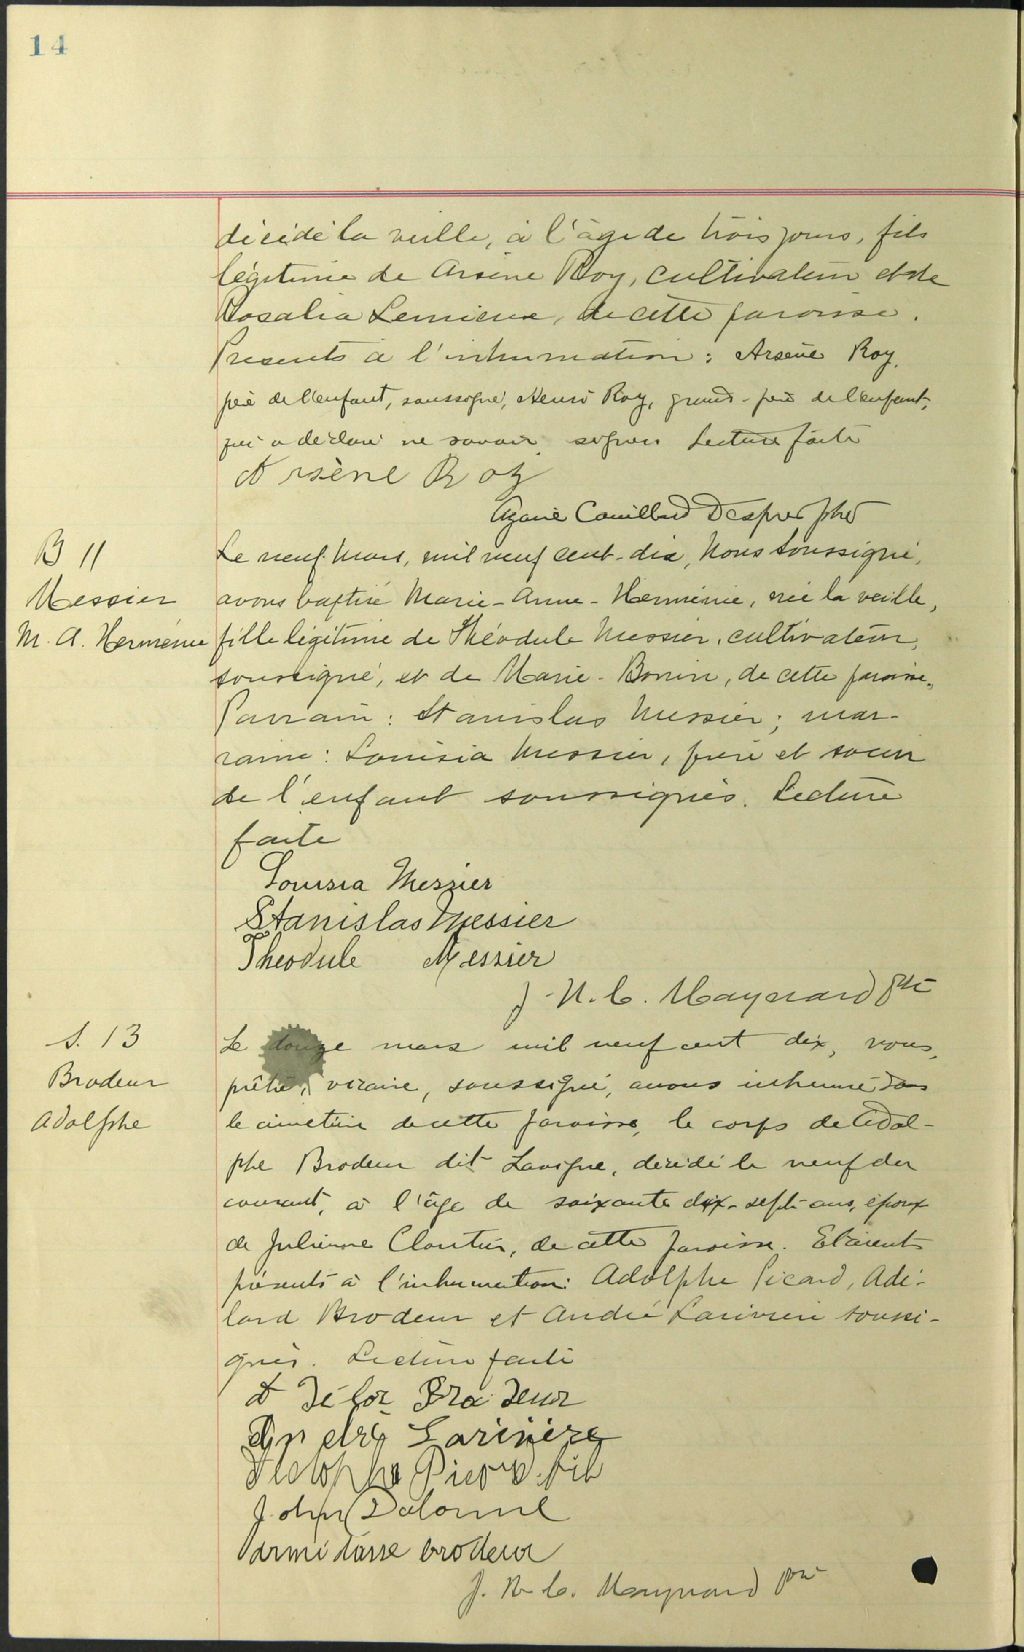 14
décédé la veille, à l'âge de trois jours, fils
légitime de Arsène Roy, cultivateur et de
Rosalia Lemieux, de cette paroisse.
Presents à l'inhumation : Arsène Roy,
père de l'enfant, soussigné, Henri Roy, grand-père de l'enfant,
qui a déclaré ne savoir signer Lecture faite
Arsène Roy
Azarie Couillard Després ptre
B 11
Messier
M. A. Herménie
Le neuf Mars, mil neuf cent-dix, Nous soussigné,
avons baptisé Marie-Anne-Herménie, née la veille,
fille légitime de Théodule Messier, cultivateur,
soussigné, et de Marie-Bonin, de cette paroisse.
Parrain : Stanislas Messier ; mar-
raine : Louisia Messier, frère et soeur
de l'enfant soussignés. Lecture
faite
Louisia Messier
Stanislas Messier
Theodule Messier
J. N. C. Maynard ptre
S. 13
Brodeur
Adolphe
Le douze mars mil neuf cent dix, nous,
prêtre, vicaire, soussigné, avons inhumé dans
le cimetière de cette paroisse, le corps de Adol-
phe Brodeur dit Lavigne, décédé le neuf du
courant, à l'âge de soixante dix-sept ans, époux
de Julienne Cloutier, de cette paroisse. Etaient
présents à l'inhumation : Adolphe Picard, Adé-
lard Brodeur et André Larivière soussi-
gnés. Lecture faite
Brodeur
André Larivière
Picard fils
John
brodeur
J. N. C. Maynard ptre